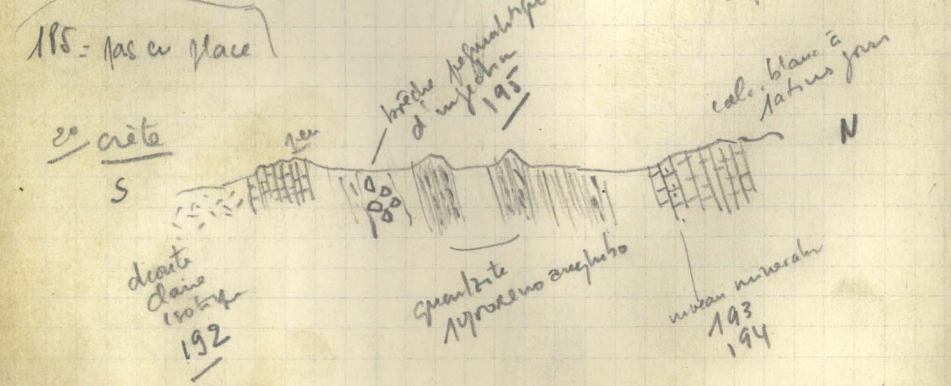 195 = pas en place
2º crête
S
N
brèche pegmatitique
d'injection
195
calc. blanc à
patine
diorite
claire
192
quartzite
pyroxeno amphibo
niveau mineralisé
193
194